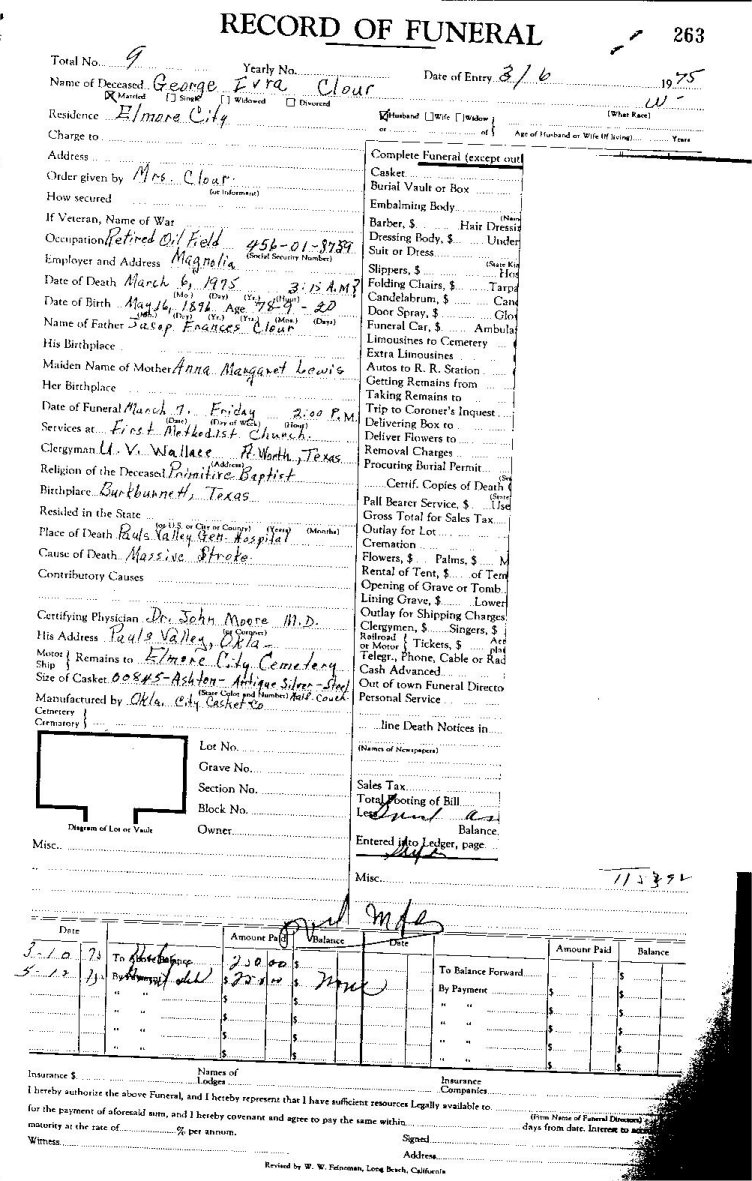 RECORD OF FUNERAL
263
Total No. 9 Yearly No. Date of Entry 3/6 1975
Name of Deceased George Ivra Clour W-
Married Single Widowed Divorced (What Race)
Residence Elmore City Husband Wife Widow
or of Age of Husband or Wife (If living) Years
Charge to
Address
Order given by Mrs. Clour
(or Informant)
How secured
If Veteran, Name of War
Occupation Retired Oil Field 456-01-8739
Employer and Address Magnolia (Social Security Number)
Date of Death March 6, 1975 3:15 A.M?
(Mo.) (Day) (Yr.) (Hour)
Date of Birth May 16, 1896 Age 78-9-20
(Mo.) (Day) (Yr.) (Yrs.) (Mos.) (Days)
Name of Father Jacop Frances Clour
His Birthplace
Maiden Name of Mother Anna Margaret Lewis
Her Birthplace
Date of Funeral March 7. Friday 2:00 P.M
(Date) (Day of Week) (Hour)
Services at First Methodist Church.
Clergyman U. V. Wallace Ft. Worth, Texas
(Address)
Religion of the Deceased Primitive Baptist
Birthplace Burkburnett, Texas
Resided in the State
(or U.S. or City or County) (Years) (Months)
Place of Death Pauls Valley Gen. Hospital
Cause of Death Massive Stroke
Contributory Causes
Certifying Physician Dr. John Moore M.D.
(or Coroner)
His Address Pauls Valley, Okla-
Motor Ship } Remains to Elmore City Cemetery
Size of Casket 00845-Ashton-Antique Silver-Steel
(State Color and Number) Half-Couch
Manufactured by Okla. City Casket Co
Cemetery
Crematory }
Lot No.
Grave No.
Section No.
Block No.
Diagram of Lot or Vault Owner
Misc.
Complete Funeral (except out
Casket
Burial Vault or Box
Embalming Body
(Nam
Barber, $ Hair Dressin
Dressing Body, $ Under
Suit or Dress
(State Kin
Slippers, $ Hos
Folding Chairs, $ Tarpa
Candelabrum, $ Cand
Door Spray, $ Glo
Funeral Car, $ Ambula
Limousines to Cemetery
Extra Limousines
Autos to R. R. Station
Getting Remains from
Taking Remains to
Trip to Coroner's Inquest
Delivering Box to
Deliver Flowers to
Removal Charges
Procuring Burial Permit
Certif. Copies of Death (
(State
Pall Bearer Service, $ Use
Gross Total for Sales Tax
Outlay for Lot
Cremation
Flowers, $ Palms, $ M
Rental of Tent, $ of Tem
Opening of Grave or Tomb
Lining Grave, $ Lower
Outlay for Shipping Charges
Clergymen, $ Singers, $
Railroad or Motor { Tickets, $ Aer plan
Telegr., Phone, Cable or Rad
Cash Advanced
Out of town Funeral Directo
Personal Service
line Death Notices in
(Names of Newspapers)
Sales Tax
Total Footing of Bill
Less
Balance
Entered into Ledger, page
Misc. 1153 92
Date Amount Paid Balance Date Amount Paid Balance
3-10 75 To Above Balance 250 00 $ To Balance Forward $
5-12 75 By Payment $ None By Payment $ $
" " $ $ " " $ $
" " $ $ " " $ $
" " $ $ " " $ $
" " $ $ " " $ $
Insurance $ Names of Lodges Insurance Companies
I hereby authorize the above Funeral, and I hereby represent that I have sufficient resources Legally available to
(Firm Name of Funeral Directors)
for the payment of aforesaid sum, and I hereby covenant and agree to pay the same within days from date. Interest to
maturity at the rate of % per annum. Signed
Witness Address
Revised by W. W. Feineman, Long Beach, California